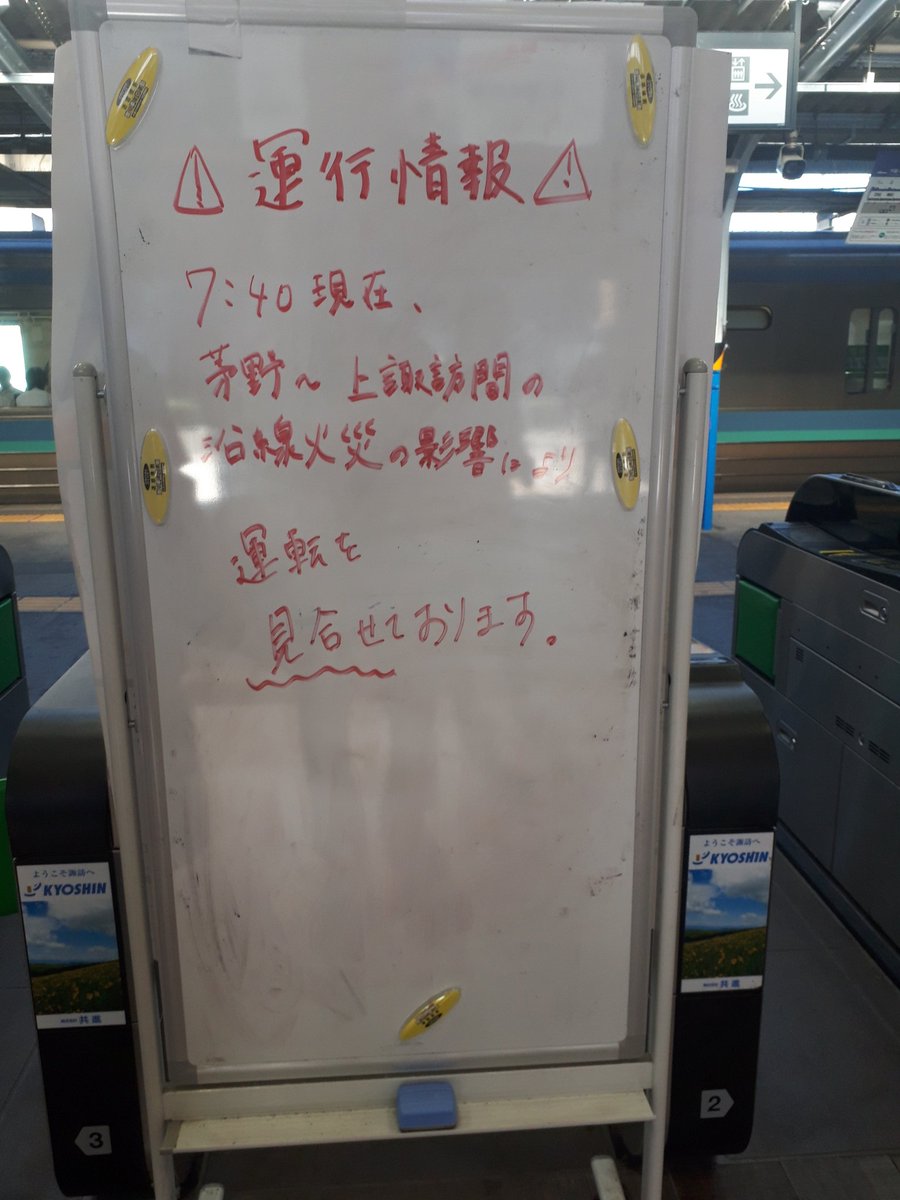 ⚠ 運行情報 ⚠
7:40 現在、
茅野～上諏訪間の
沿線火災の影響により
運転を
見合せております。
ようこそ諏訪へ
KYOSHIN
共進
3
ようこそ諏訪へ
KYOSHIN
共進
2